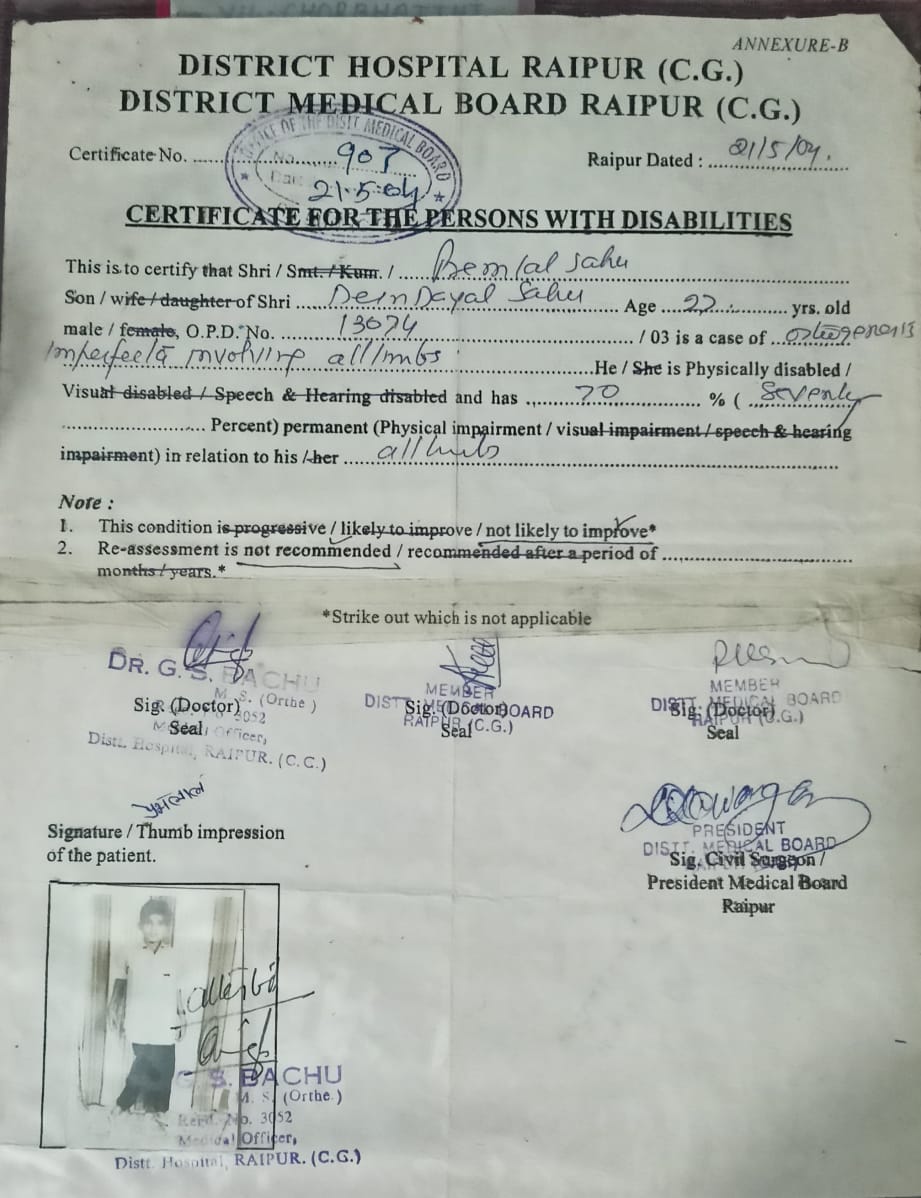 ANNEXURE-B
DISTRICT HOSPITAL RAIPUR (C.G.)
DISTRICT MEDICAL BOARD RAIPUR (C.G.)
OFFICE OF THE DISTT MEDICAL BOARD
Certificate No. ...... No. ...... 907
Raipur Dated : 21/5/04.
21.5.04
CERTIFICATE FOR THE PERSONS WITH DISABILITIES
This is to certify that Shri / Smt. / Kum. / .... Pemlal Sahu
Son / wife / daughter of Shri .... Deen Dayal Sahu .... Age .... 22 .... yrs. old
male / female, O.P.D. No. .... 13074 .... / 03 is a case of .. osteogenesis
imperfecta involving all limbs ....He / She is Physically disabled /
Visual disabled / Speech & Hearing disabled and has ....70.... % ( Seventy
.... Percent) permanent (Physical impairment / visual impairment / speech & hearing
impairment) in relation to his /her .... all limbs
Note :
1. This condition is progressive / likely to improve / not likely to improve*
2. Re-assessment is not recommended / recommended after a period of ....
months / years.*
*Strike out which is not applicable
DR. G. S. BACHU
M. S. (Orthe )
Sig. (Doctor)
3052
Seal
Officer,
Distt. Hospital, RAIPUR. (C.G.)
MEMBER
DISTT. MEDICAL BOARD
Sig. (Doctor)
RAIPUR (C.G.)
Seal
MEMBER
DISTT. MEDICAL BOARD
Sig. (Doctor)
RAIPUR (C.G.)
Seal
Signature / Thumb impression
of the patient.
PRESIDENT
DISTT. MEDICAL BOARD
Sig. Civil Surgeon /
President Medical Board
Raipur
G S. BACHU
M. S. (Orthe )
Regd. No. 3052
Medical Officer,
Distt. Hospital, RAIPUR. (C.G.)